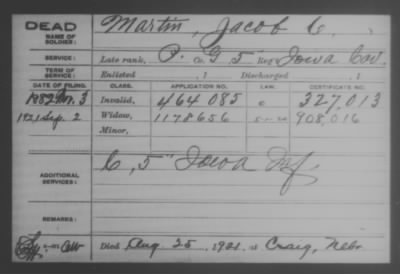 DEAD
NAME OF SOLDIER: Martin, Jacob C.
SERVICE: Late rank, P. Co. G 5" Reg Iowa Cav.
TERM OF SERVICE: Enlisted , 1 Discharged , 1
DATE OF FILING. CLASS. APPLICATION NO. LAW. CERTIFICATE NO.
1882 3 Invalid, 464 085 327,013
1921 Sep. 2 Widow, 1178656 908,016
Minor,
ADDITIONAL SERVICES: C, 5" Iowa Inf.
REMARKS:
Died Aug 25, 1921. at Craig, Nebr